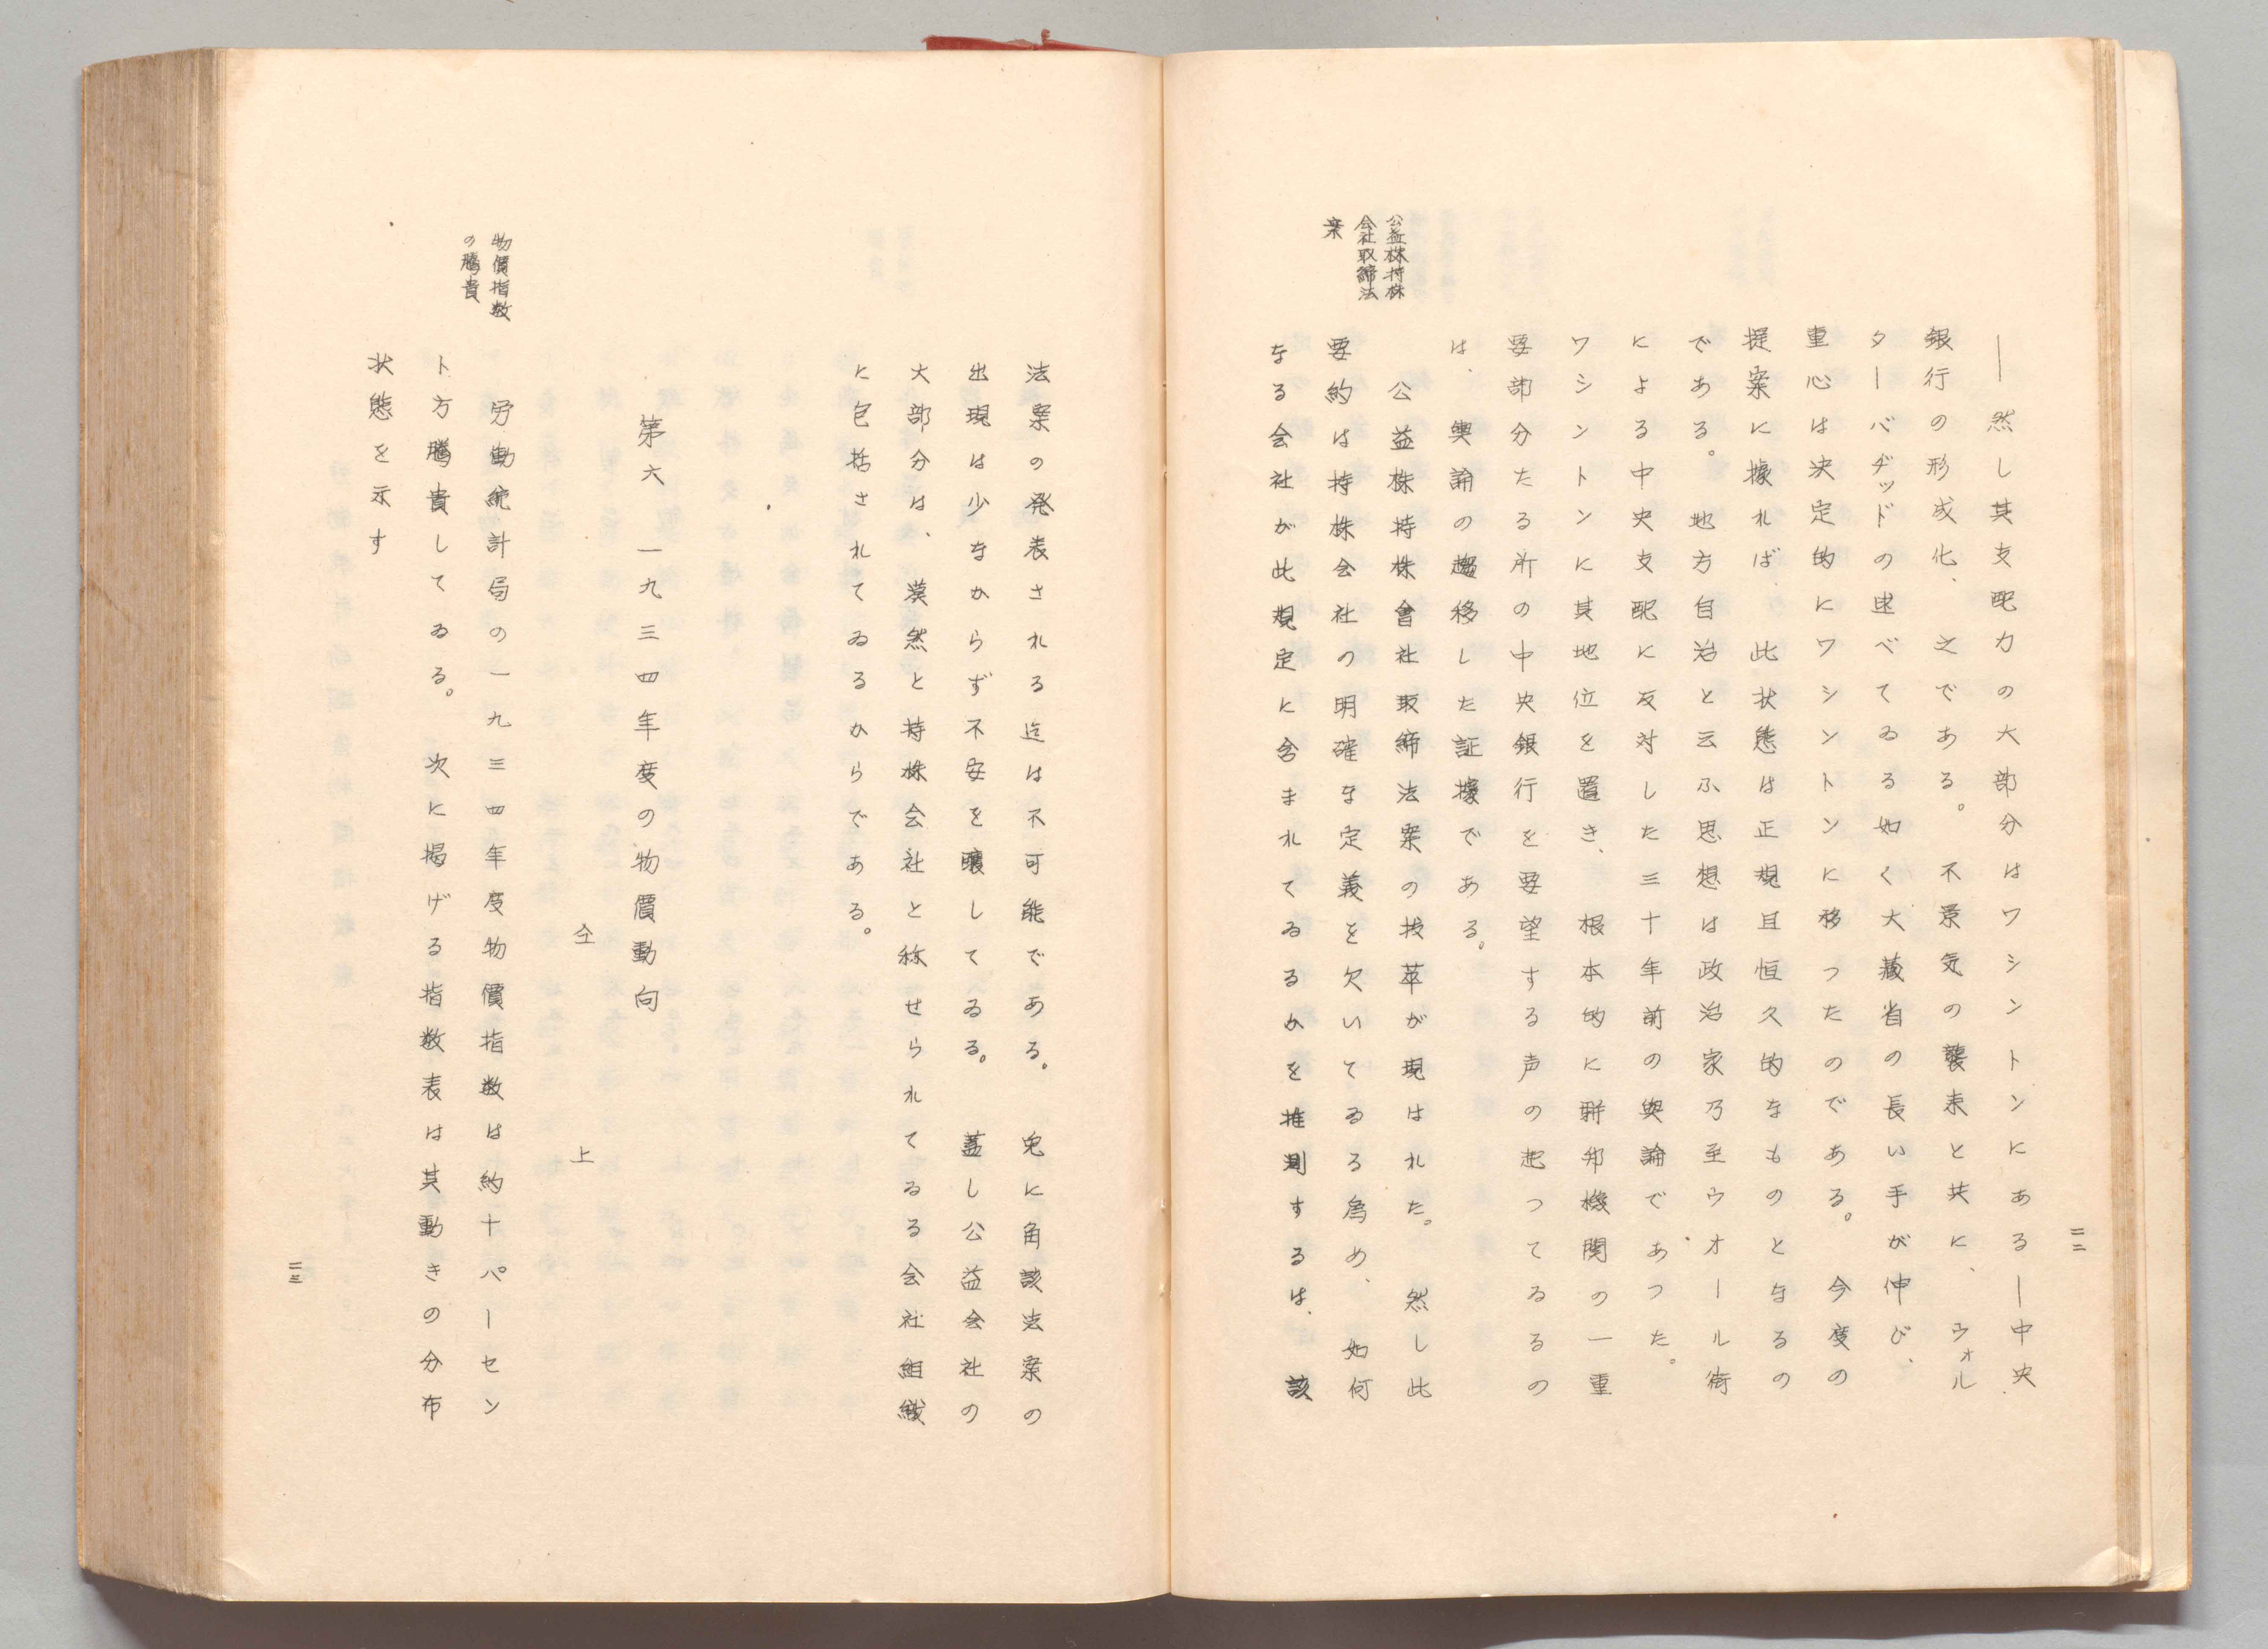 二二
―然し其支配力の大部分はワシントンにある―中央
銀行の形成化、之である。不景気の襲来と共に、ウォル
ター・バヂッドの述べてゐる如く大蔵省の長い手が伸び、
重心は決定的にワシントンに移つたのである。今度の
提案に據れば、此状態は正規且恒久的なものとなるの
である。地方自治と云ふ思想は政治家乃至ウオール街
による中央支配に反対した三十年前の輿論であつた。
ワシントンに其地位を置き、根本的に聯邦機関の一重
要部分たる所の中央銀行を要望する声の起つてゐるの
は、輿論の趨移した証據である。
公益株持株
会社取締法
案
公益株持株會社取締法案の抜萃が現はれた。然し此
要約は持株会社の明確な定義を欠いてゐる為め、如何
なる会社が此規定に含まれてゐるかを推測するは、該
法案の発表される迄は不可能である。兎に角該法案の
出現は少なからず不安を醸してゐる。蓋し公益会社の
大部分は、漠然と持株会社と称せられてゐる会社組織
に包括されてゐるからである。
第六 一九三四年度の物價動向
仝 上
物價指数
の騰貴
労働統計局の一九三四年度物價指数は約十パーセン
ト方騰貴してゐる。次に揭げる指数表は其動きの分布
状態を示す
二三